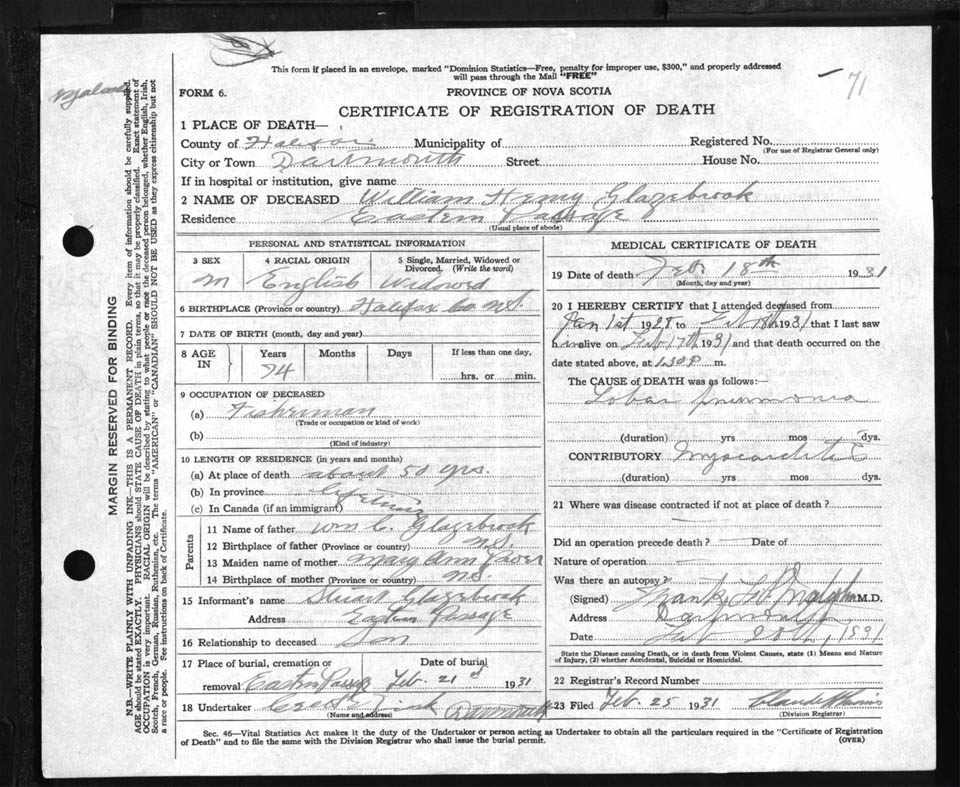 This form if placed in an envelope, marked "Dominion Statistics—Free, penalty for improper use, $300," and properly addressed
will pass through the Mail "FREE"
71
FORM 6.
PROVINCE OF NOVA SCOTIA
CERTIFICATE OF REGISTRATION OF DEATH
1 PLACE OF DEATH—
County of Halifax Municipality of Registered No.
(For use of Registrar General only)
City or Town Dartmouth Street. House No.
If in hospital or institution, give name
2 NAME OF DECEASED William Henry Glazebrook
Residence Eastern Passage
(Usual place of abode)
MARGIN RESERVED FOR BINDING
N.B.—WRITE PLAINLY WITH UNFADING INK—THIS IS A PERMANENT RECORD. Every item of information should be carefully supplied.
AGE should be stated EXACTLY. PHYSICIANS should STATE CAUSE OF DEATH in plain terms, so that it may be properly classified. Exact statement of
OCCUPATION is very important. RACIAL ORIGIN will be described by stating to what people or race the deceased person belonged, whether English, Irish,
Scotch, French, German, Russian, Ruthenian, etc. The terms "AMERICAN" or "CANADIAN" SHOULD NOT BE USED as they express citizenship but not
a race or people. See instructions on back of Certificate.
PERSONAL AND STATISTICAL INFORMATION
3 SEX 4 RACIAL ORIGIN 5 Single, Married, Widowed or
Divorced. (Write the word)
M English Widowed
6 BIRTHPLACE (Province or country) Halifax Co N.S.
7 DATE OF BIRTH (month, day and year)
8 AGE IN Years Months Days If less than one day,
74 hrs. or min.
9 OCCUPATION OF DECEASED
(a) Fisherman
(Trade or occupation or kind of work)
(b)
(Kind of industry)
10 LENGTH OF RESIDENCE (in years and months)
(a) At place of death about 50 yrs.
(b) In province lifetime
(c) In Canada (if an immigrant)
Parents
11 Name of father Wm C. Glazebrook
12 Birthplace of father (Province or country) N.S.
13 Maiden name of mother Mary Ann
14 Birthplace of mother (Province or country) N.S.
15 Informant's name Stuart Glazebrook
Address Eastern Passage
16 Relationship to deceased Son
17 Place of burial, cremation or Date of burial
removal Eastern Passage Feb. 21 1931
18 Undertaker Dartmouth
(Name and address)
MEDICAL CERTIFICATE OF DEATH
19 Date of death Feb 18th 1931
(Month, day and year)
20 I HEREBY CERTIFY that I attended deceased from
Jan 1st 1928 to Feb 18th 1931 that I last saw
him alive on Feb 17th 1931 and that death occurred on the
date stated above, at 1.30 P m.
The CAUSE of DEATH was as follows:—
Lobar pneumonia
(duration) yrs mos dys.
CONTRIBUTORY Myocarditis
(duration) yrs. mos. dys.
21 Where was disease contracted if not at place of death?
Did an operation precede death? Date of
Nature of operation
Was there an autopsy?
(Signed) Frank M.D.
Address Dartmouth
Date Feb 20th, 1931
State the Disease causing Death, or in death from Violent Causes, state (1) Means and Nature
of Injury, (2) whether Accidental, Suicidal or Homicidal.
22 Registrar's Record Number
23 Filed Feb. 25 1931
(Division Registrar)
Sec. 46—Vital Statistics Act makes it the duty of the Undertaker or person acting as Undertaker to obtain all the particulars required in the "Certificate of Registration
of Death" and to file the same with the Division Registrar who shall issue the burial permit. (OVER)